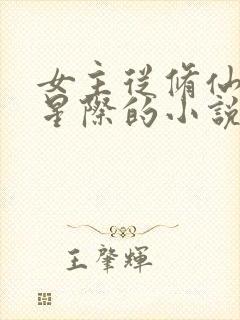 女主從脩仙
星際的小說
王肇輝